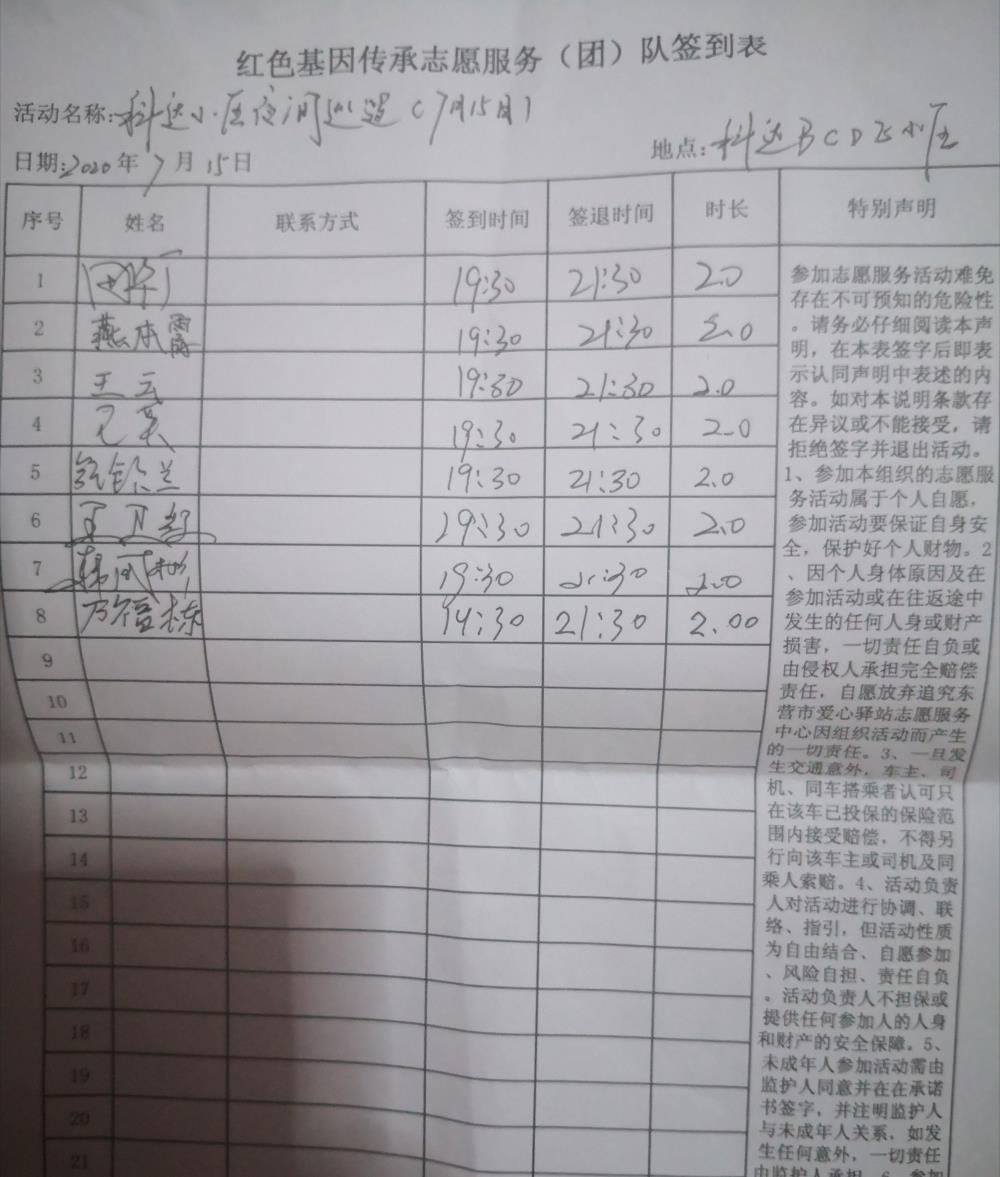 红色基因传承志愿服务（团）队签到表
活动名称:科达小区夜间巡逻（7月15日）
日期:2020年7月15日
地点:科达BCD区小区
序号 姓名 联系方式 签到时间 签退时间 时长 特别声明
1 19:30 21:30 2.0
2 燕本霄 19:30 21:30 2.0
3 王云 19:30 21:30 2.0
4 19:30 21:30 2.0
5 19:30 21:30 2.0
6 19:30 21:30 2.0
7 19:30 21:30 2.0
8 19:30 21:30 2.00
9
10
11
12
13
14
15
16
17
18
19
20
21
参加志愿服务活动难免
存在不可预知的危险性
。请务必仔细阅读本声
明，在本表签字后即表
示认同声明中表述的内
容。如对本说明条款存
在异议或不能接受，请
拒绝签字并退出活动。
1、参加本组织的志愿服
务活动属于个人自愿，
参加活动要保证自身安
全，保护好个人财物。2
、因个人身体原因及在
参加活动或在往返途中
发生的任何人身或财产
损害，一切责任自负或
由侵权人承担完全赔偿
责任，自愿放弃追究东
营市爱心驿站志愿服务
中心因组织活动而产生
的一切责任。3、一旦发
生交通意外，车主、司
机、同车搭乘者认可只
在该车已投保的保险范
围内接受赔偿，不得另
行向该车主或司机及同
乘人索赔。4、活动负责
人对活动进行协调、联
络、指引，但活动性质
为自由结合、自愿参加
、风险自担、责任自负
。活动负责人不担保或
提供任何参加人的人身
和财产的安全保障。5、
未成年人参加活动需由
监护人同意并在在承诺
书签字，并注明监护人
与未成年人关系，如发
生任何意外，一切责任
由监护人承担。6、参加